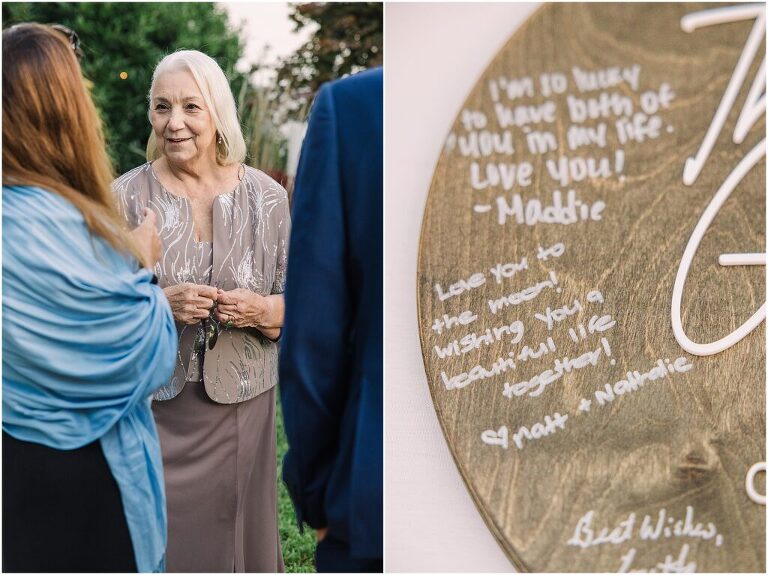 I'm so lucky
to have both of
you in my life.
Love you!
- Maddie
Love you to
the moon!
wishing you a
beautiful life
together!
♡ Matt + Nathalie
Best Wishes,